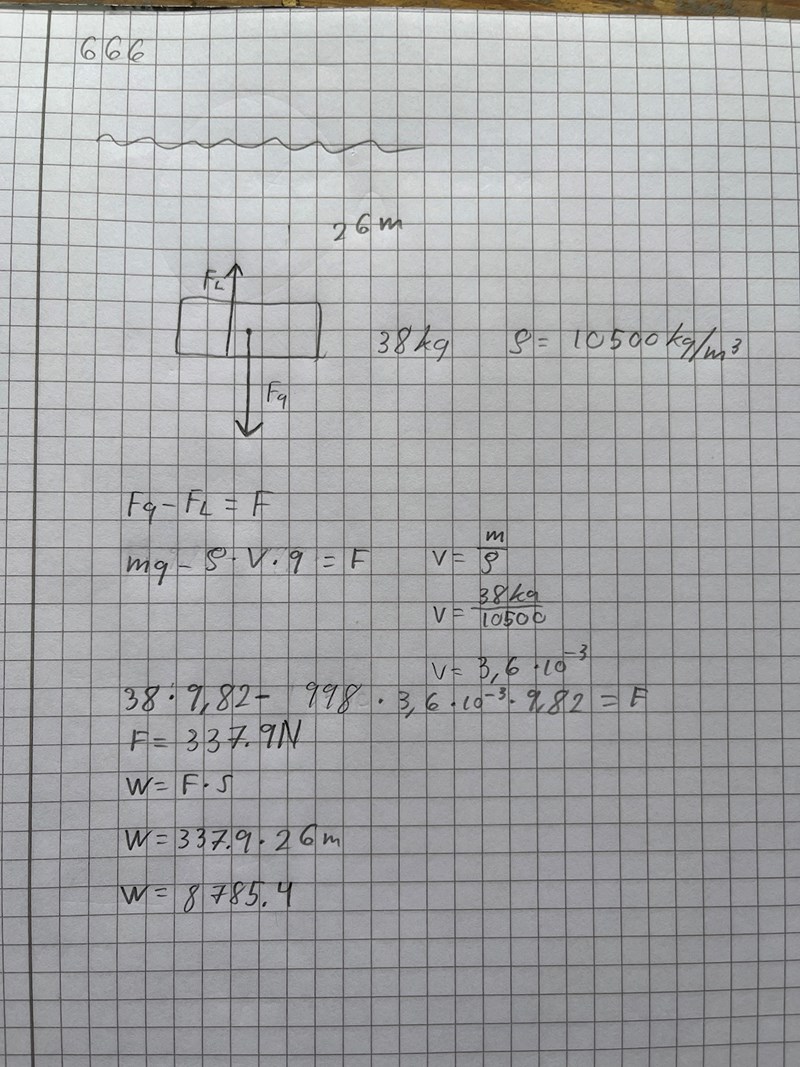 666
26m
FL
38kg ρ = 10500 kg/m³
Fg
Fg - FL = F
mg - ρ · V · g = F
V = m/ρ
V = 38kg/10500
V = 3,6 · 10⁻³
38 · 9,82 - 998 · 3,6 · 10⁻³ · 9,82 = F
F = 337.9N
W = F · S
W = 337.9 · 26m
W = 8785.4